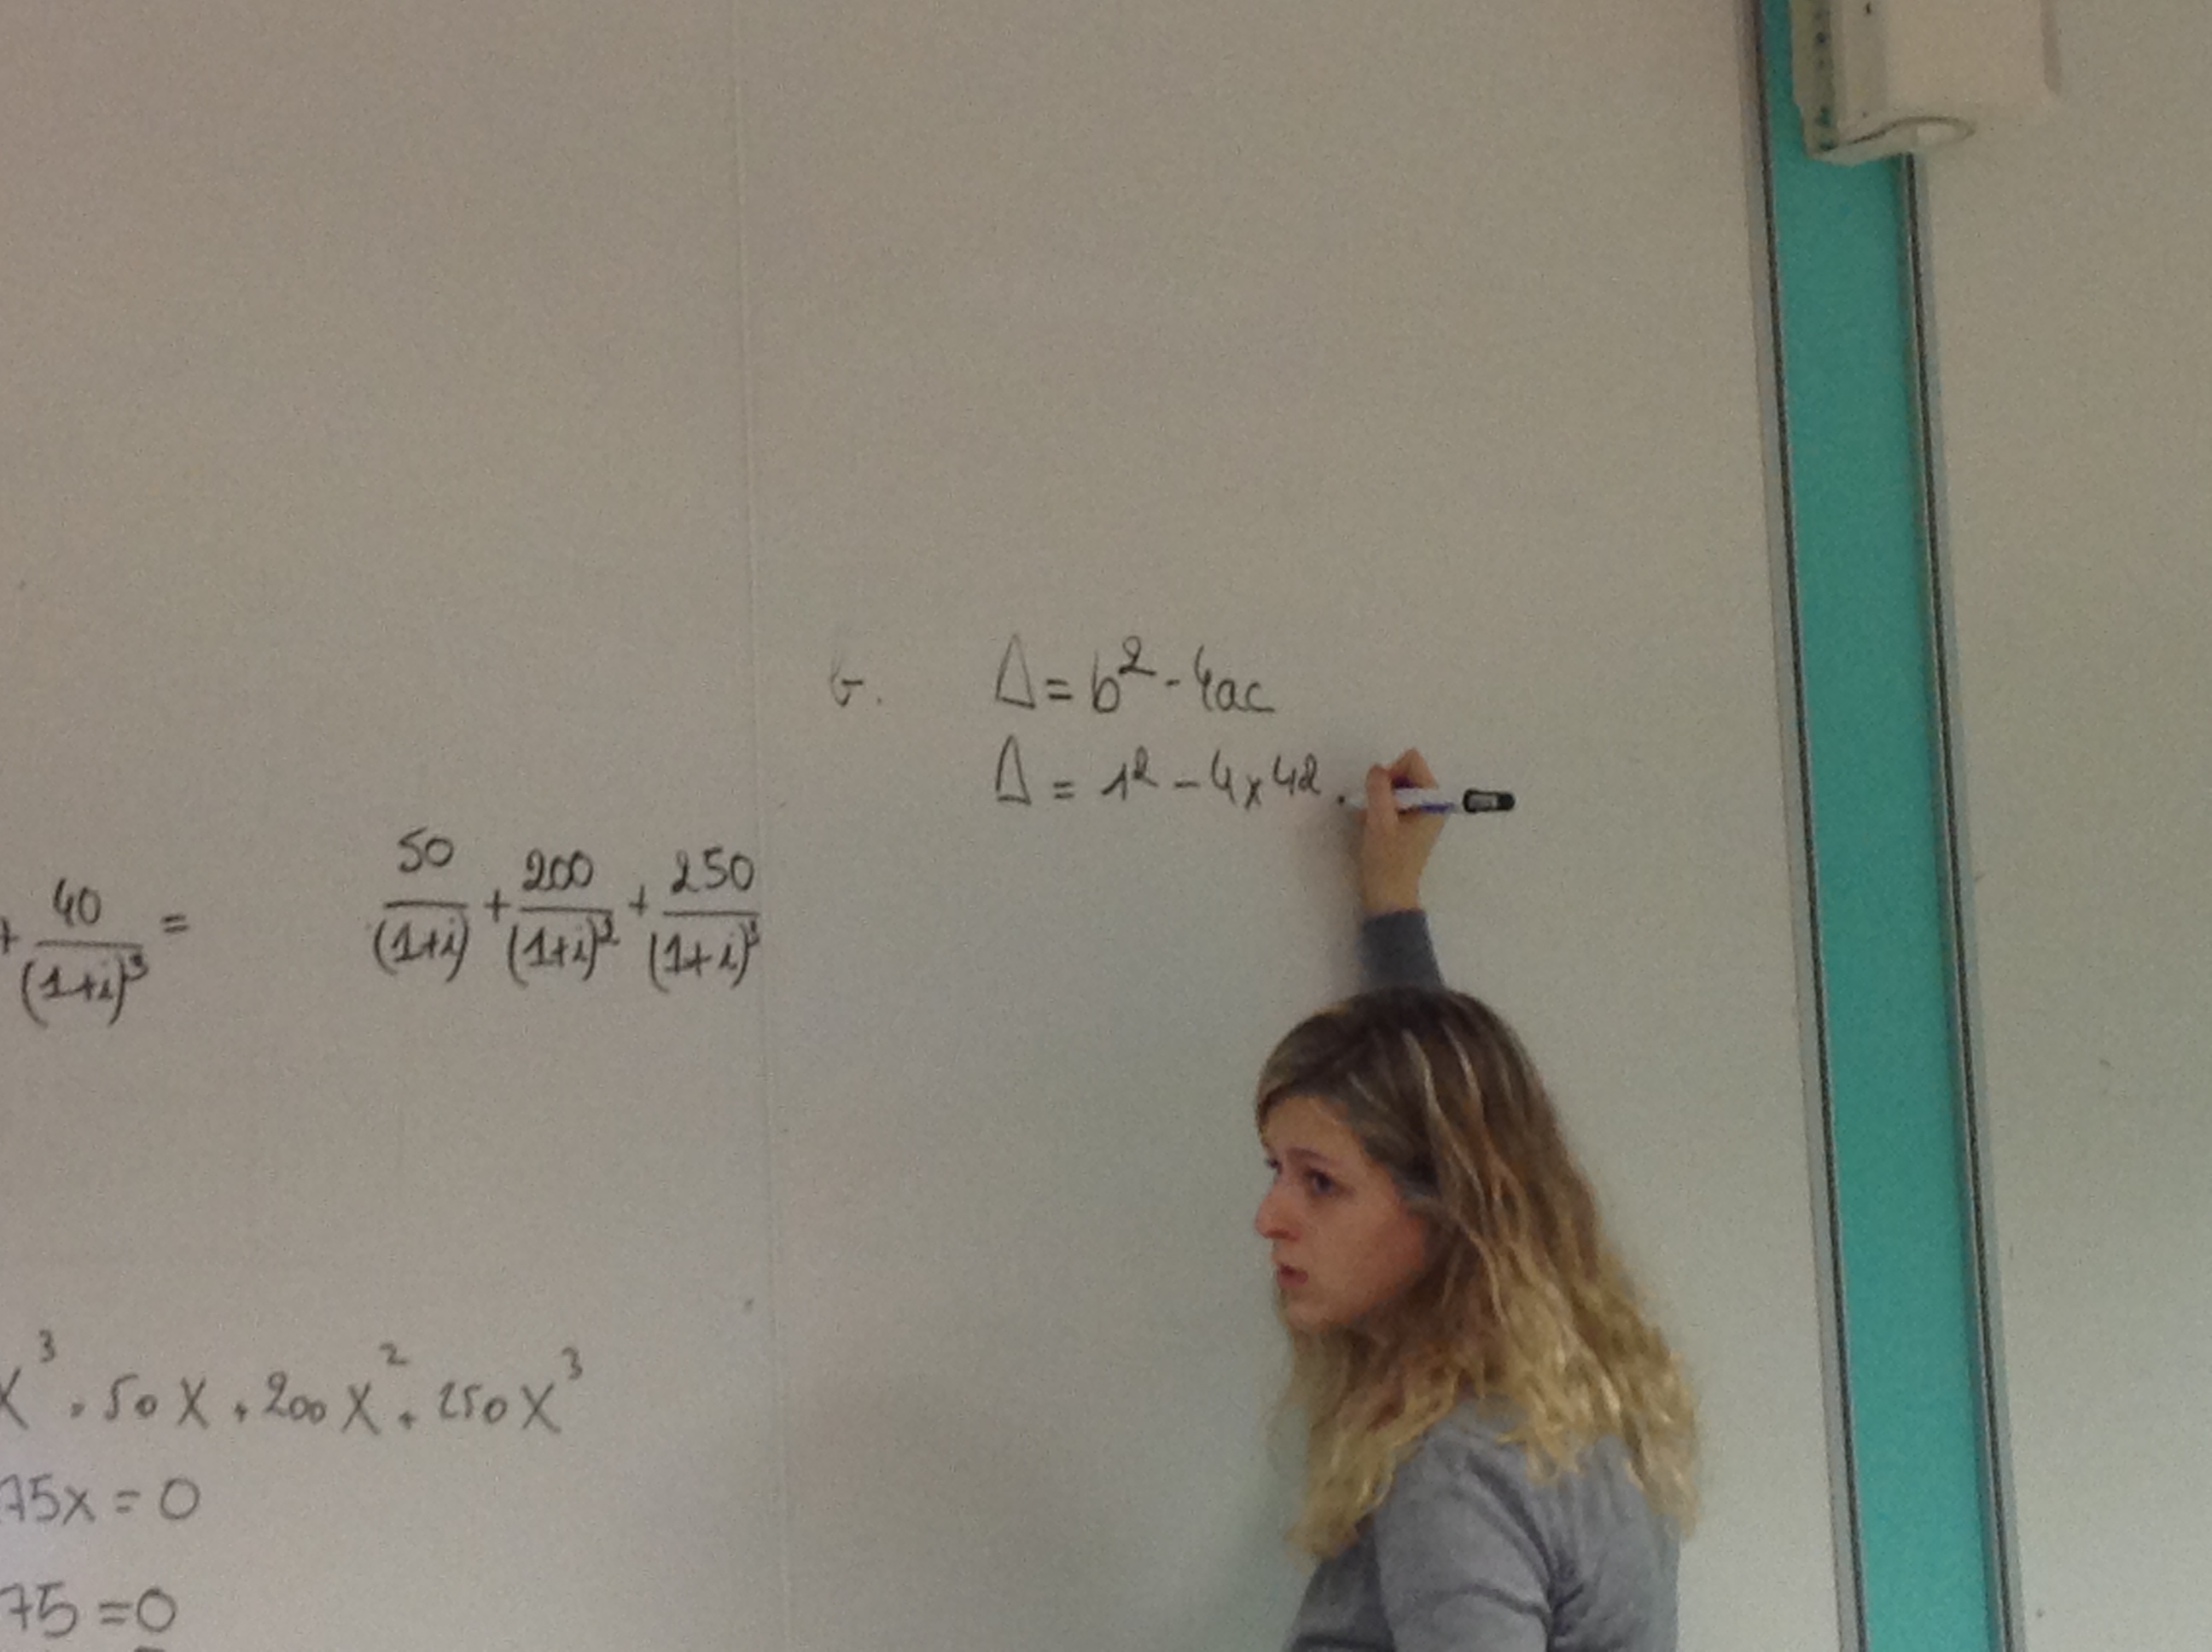 b. Δ = b² - 4ac
Δ = 1² - 4 x 42 .
+ 40/(1+i)³ = 50/(1+i) + 200/(1+i)² + 250/(1+i)³
X³ + 50X + 200X² + 250X³
75x = 0
75 = 0